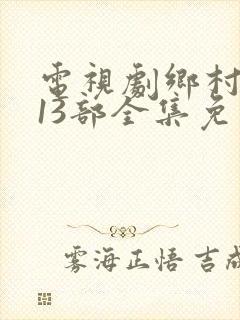 電視劇鄉村
13部全集免
雾海正悟 吉成